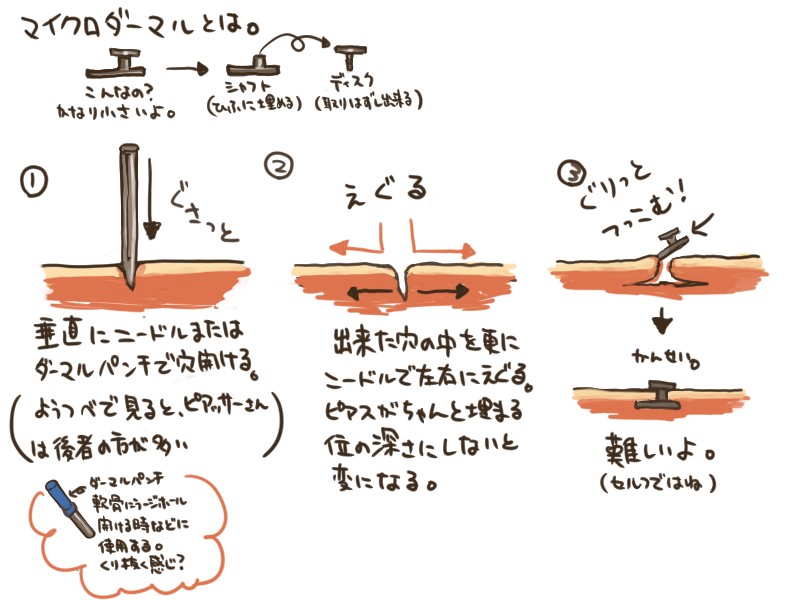 マイクロダーマルとは。
こんなの?
かなり小さいよ。
シャフト
(ひふに埋める)
ディスク
(取りはずし出来る)
①
ぐさっと
垂直にニードルまたは
ダーマルパンチで穴開ける。
(ようつべで見ると、ピアッサーさん
は後者の方が多い)
ダーマルパンチ
軟骨にラージホール
開ける時などに
使用する。
くり抜く感じ?
②
えぐる
出来た穴の中を更に
ニードルで左右にえぐる。
ピアスがちゃんと埋まる
位の深さにしないと
変になる。
③
ぐりっと
つっこむ!
かんせい。
難しいよ。
(セルフではね)